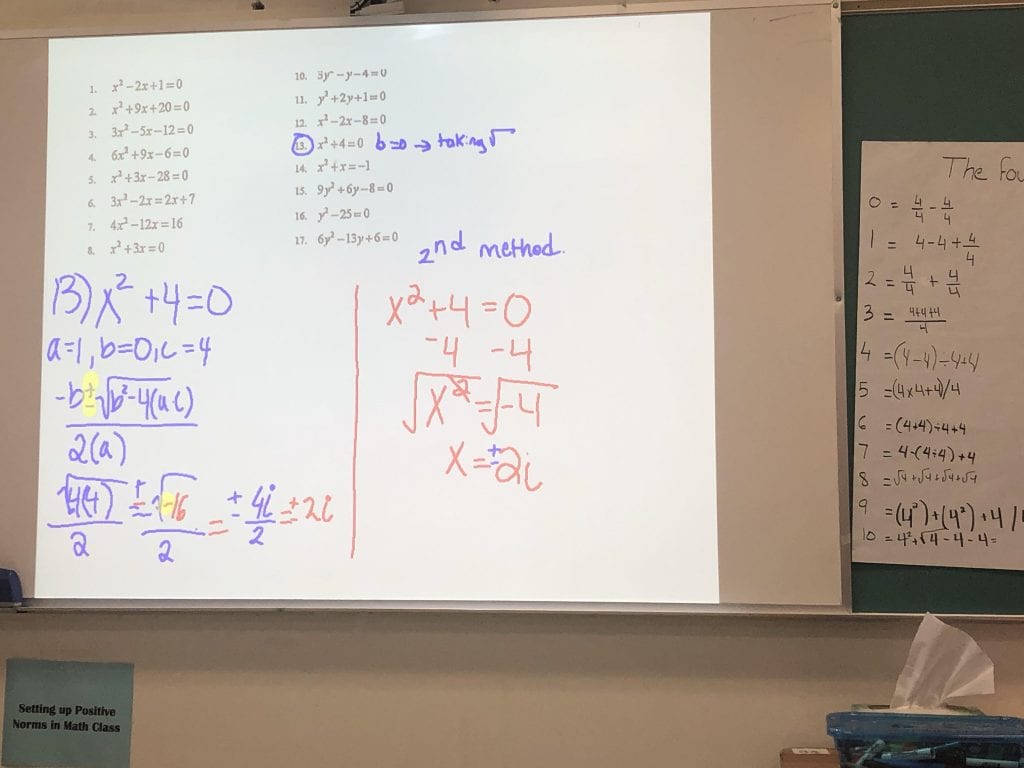 1. x²-2x+1=0
2. x²+9x+20=0
3. 3x²-5x-12=0
4. 6x²+9x-6=0
5. x²+3x-28=0
6. 3x²-2x=2x+7
7. 4x²-12x=16
8. x²+3x=0
10. 3y²-y-4=0
11. y²+2y+1=0
12. x²-2x-8=0
13. x²+4=0 b=0 → taking √
14. x²+x=-1
15. 9y²+6y-8=0
16. y²-25=0
17. 6y²-13y+6=0
13) x² +4=0
a=1, b=0, c=4
-b ± √b²-4(a c)
2(a)
± √-16 = ± 4i = ± 2i
2 2 2
2nd method.
x²+4 = 0
-4 -4
√x² = √-4
x = ± 2i
The
0 = 4/4 - 4/4
1 = 4-4+4/4
2 = 4/4 + 4/4
3 = 4+4+4/4
4 = (4-4)÷4+4
5 = (4x4+4)/4
6 = (4+4)÷4+4
7 = 4-(4÷4)+4
8 = √4+√4+√4+√4
9 = (4²)+(4²)+4/
10 = 4²+√4-4-4=
Setting up Positive
Norms in Math Class